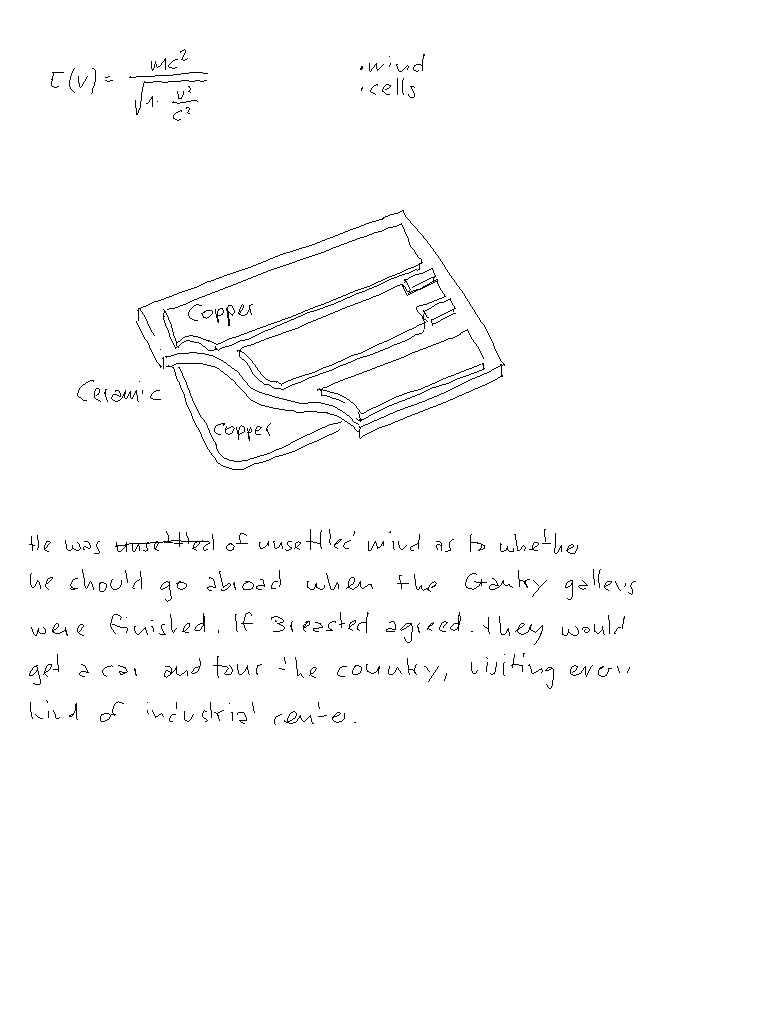 E(v) = mc² / √(1 - v²/c²)
• wind
• cells
Copper
Ceramic
Copper
He was unsettled of unsettled mind as to whether
he should go abroad when the Gantry galleys
were finished. If Breasted agreed. they would
get a car and tour the country, visiting every
kind of industrial center.